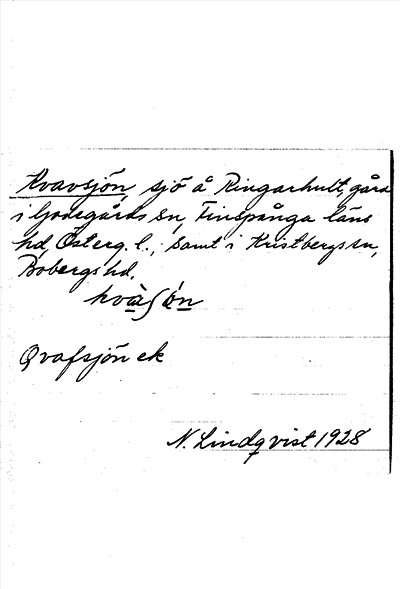 Kvavsjön, sjö å Ringarhult, gård
i Godegårds sn, Finspånga läns
hd, Österg. l., samt i Kristbergs sn,
Bobergs hd.
kvàʃón
Qvafsjön ek
N. Lindqvist 1928